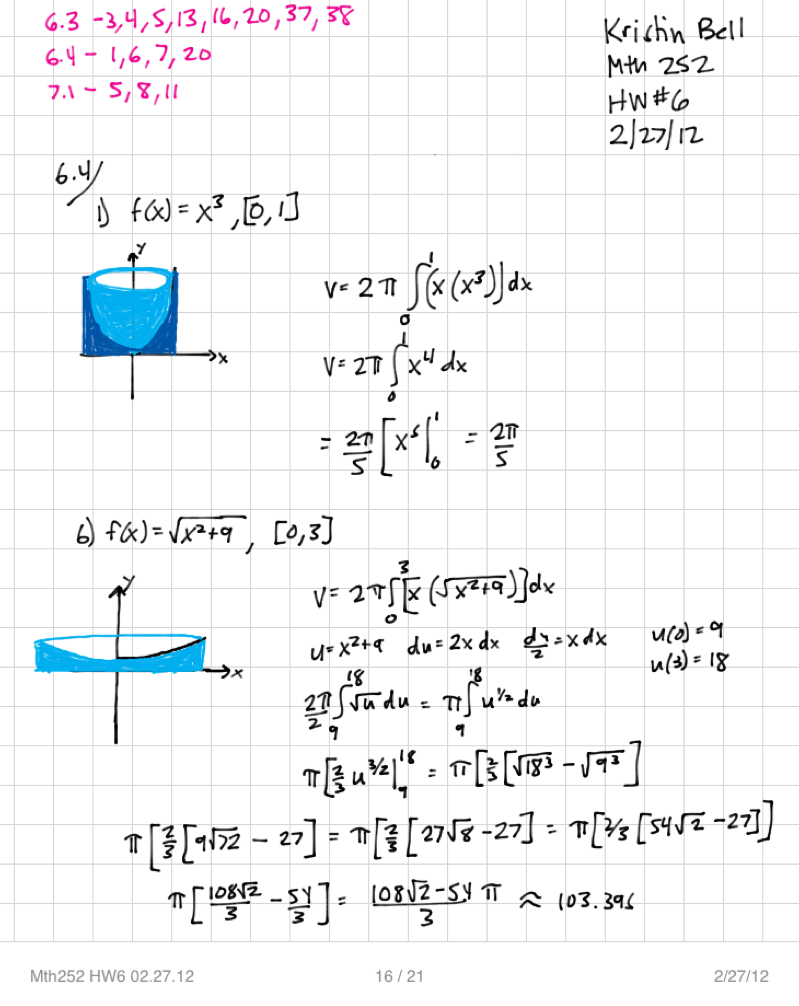 6.3 - 3,4,5,13,16,20,37,38
6.4 - 1,6,7,20
7.1 - 5,8,11
Kristin Bell
Mth 252
HW#6
2/27/12
6.4/
1) f(x) = x³, [0,1]
y
x
V = 2π ∫₀¹ (x(x³)] dx
V = 2π ∫₀¹ x⁴ dx
= 2π/5 [x⁵|₀¹ = 2π/5
6) f(x) = √(x²+9), [0,3]
y
x
V = 2π ∫₀³ [x(√(x²+9))] dx
u = x²+9 du = 2x dx du/2 = x dx u(0) = 9
u(3) = 18
2π/2 ∫₉¹⁸ √u du = π ∫₉¹⁸ u^(1/2) du
π[2/3 u^(3/2)|₉¹⁸ = π[2/3[√18³ - √9³]
π[2/3[9√72 - 27] = π[2/3[27√8 - 27] = π[2/3[54√2 - 27]]
π[108√2/3 - 54/3] = (108√2 - 54)/3 π ≈ 103.396
Mth252 HW6 02.27.12
16 / 21
2/27/12